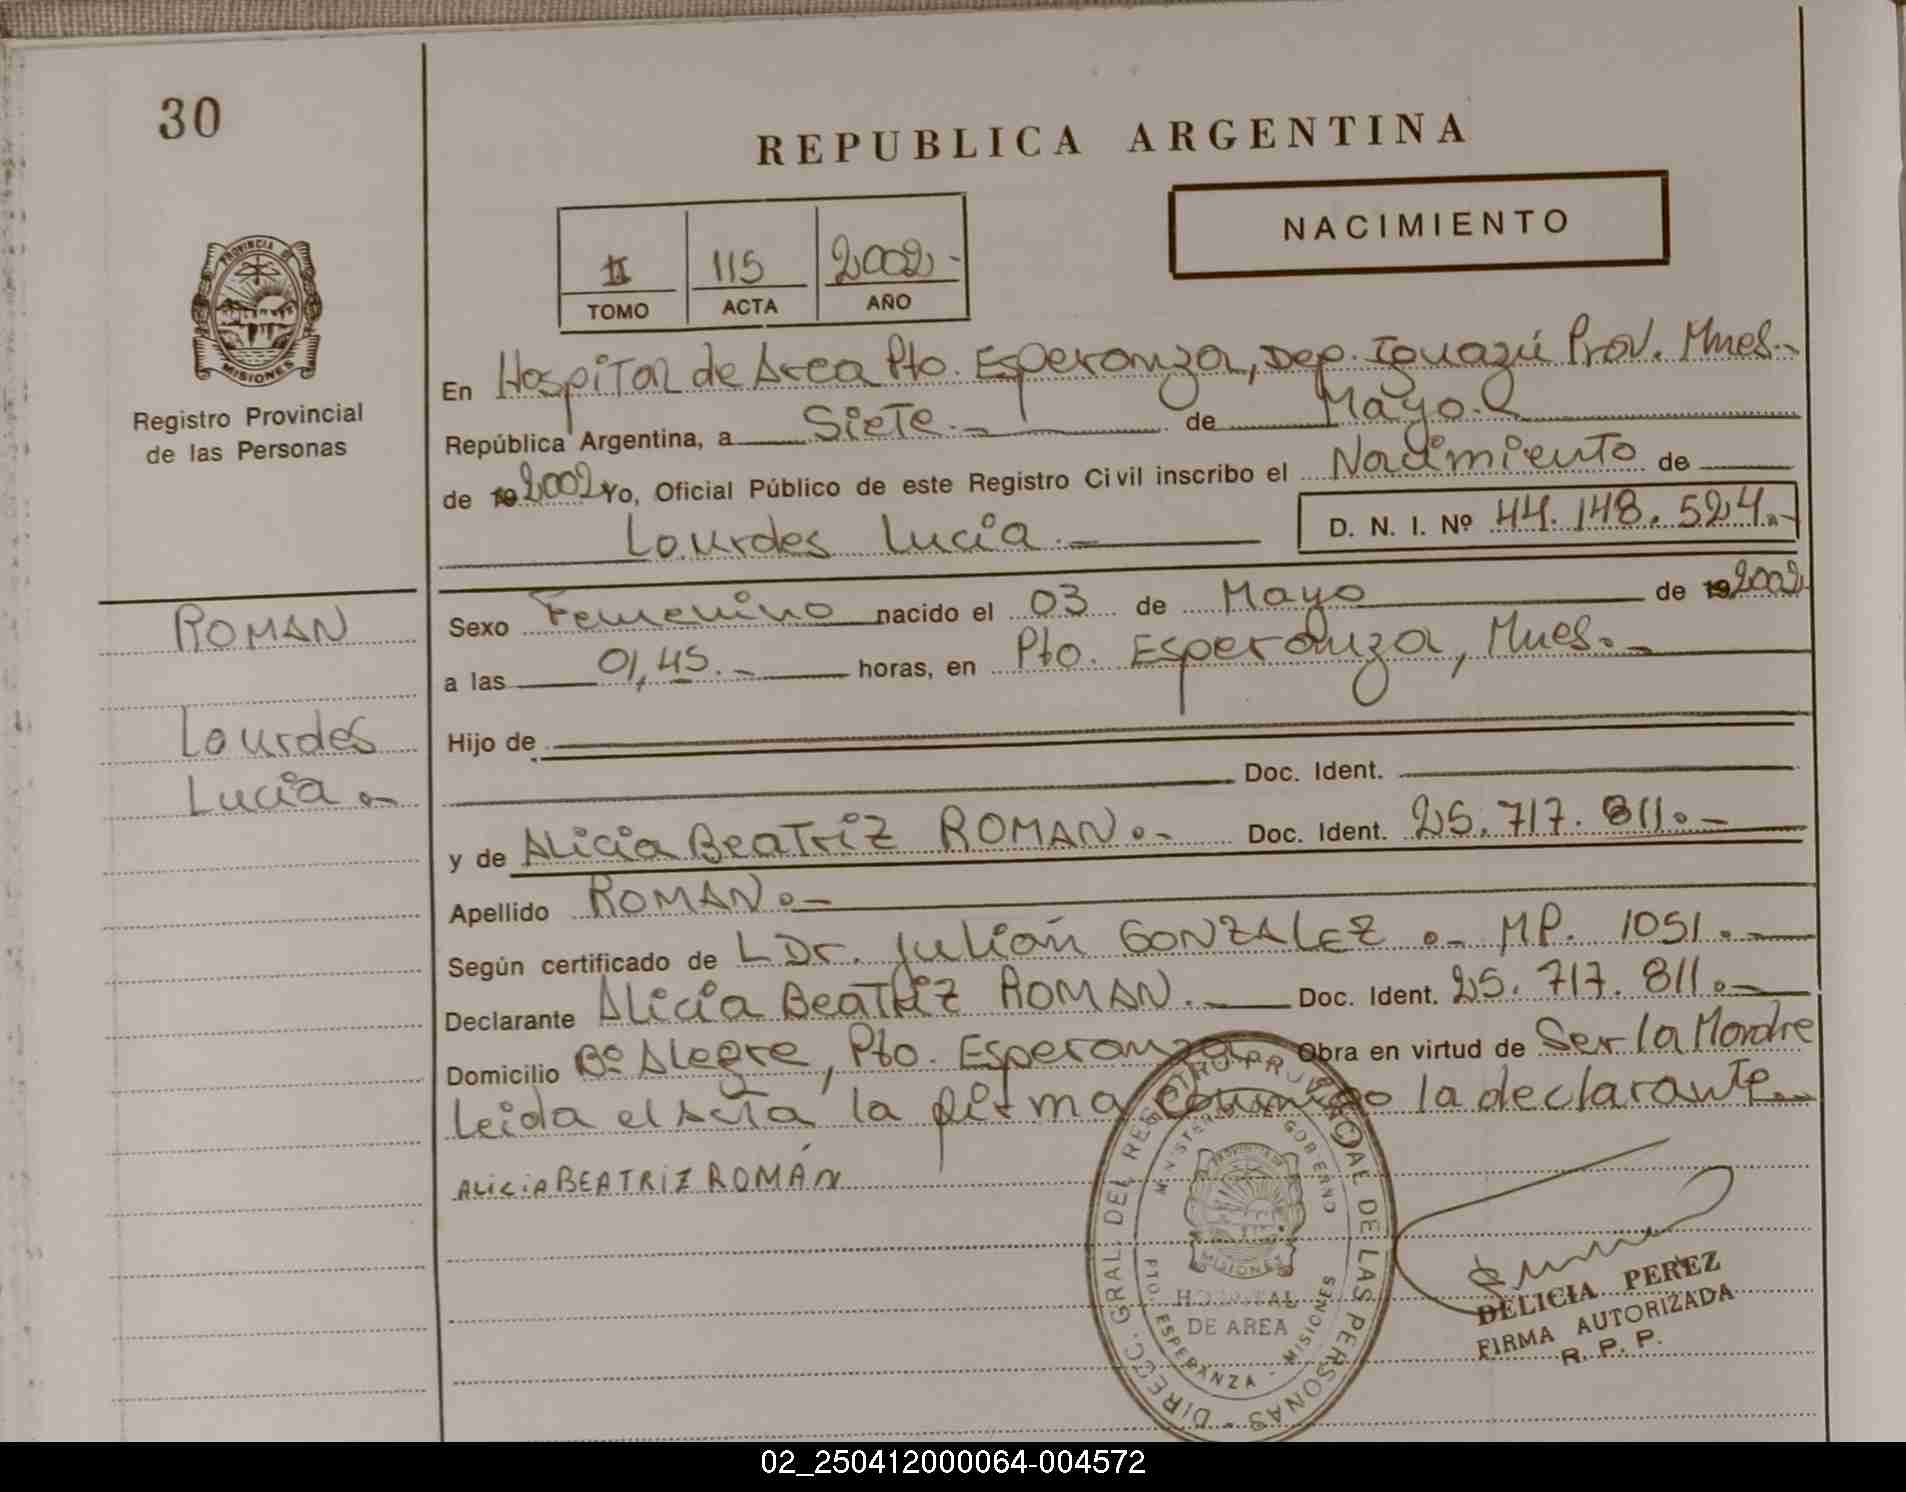 30
REPUBLICA ARGENTINA
NACIMIENTO
II 115 2002.-
TOMO ACTA AÑO
PROVINCIA DE
MISIONES
Registro Provincial
de las Personas
En Hospital de Area Pto. Esperanza, Dep. Iguazú Prov. Mnes.-
República Argentina, a Siete.- de Mayo.
de 19 2002 Yo, Oficial Público de este Registro Civil inscribo el Nacimiento de
Lourdes Lucía.- D. N. I. Nº 44.148.524.-
ROMAN
Lourdes
Lucía.-
Sexo Femenino nacido el 03 de Mayo de 19 2002
a las 01,45.- horas, en Pto. Esperanza, Mnes.-
Hijo de
Doc. Ident.
y de Alicia Beatriz ROMAN.- Doc. Ident. 25.717.811.-
Apellido ROMAN.-
Según certificado de Dr. Julián GONZALEZ.- MP. 1051.-
Declarante Alicia Beatriz ROMAN.- Doc. Ident. 25.717.811.-
Domicilio Bº Alegre, Pto. Esperanza Obra en virtud de Ser la Madre
leida el Acta la firma conmigo la declarante.-
ALICIA BEATRIZ ROMÁN
DIRECC. GRAL. DEL REGISTRO PROVINCIAL DE LAS PERSONAS
MINISTERIO GOBIERNO
PROVINCIA DE
MISIONES
HOSPITAL
DE AREA
PTO. ESPERANZA - MISIONES
DELICIA PEREZ
FIRMA AUTORIZADA
R. P. P.
02_250412000064-004572